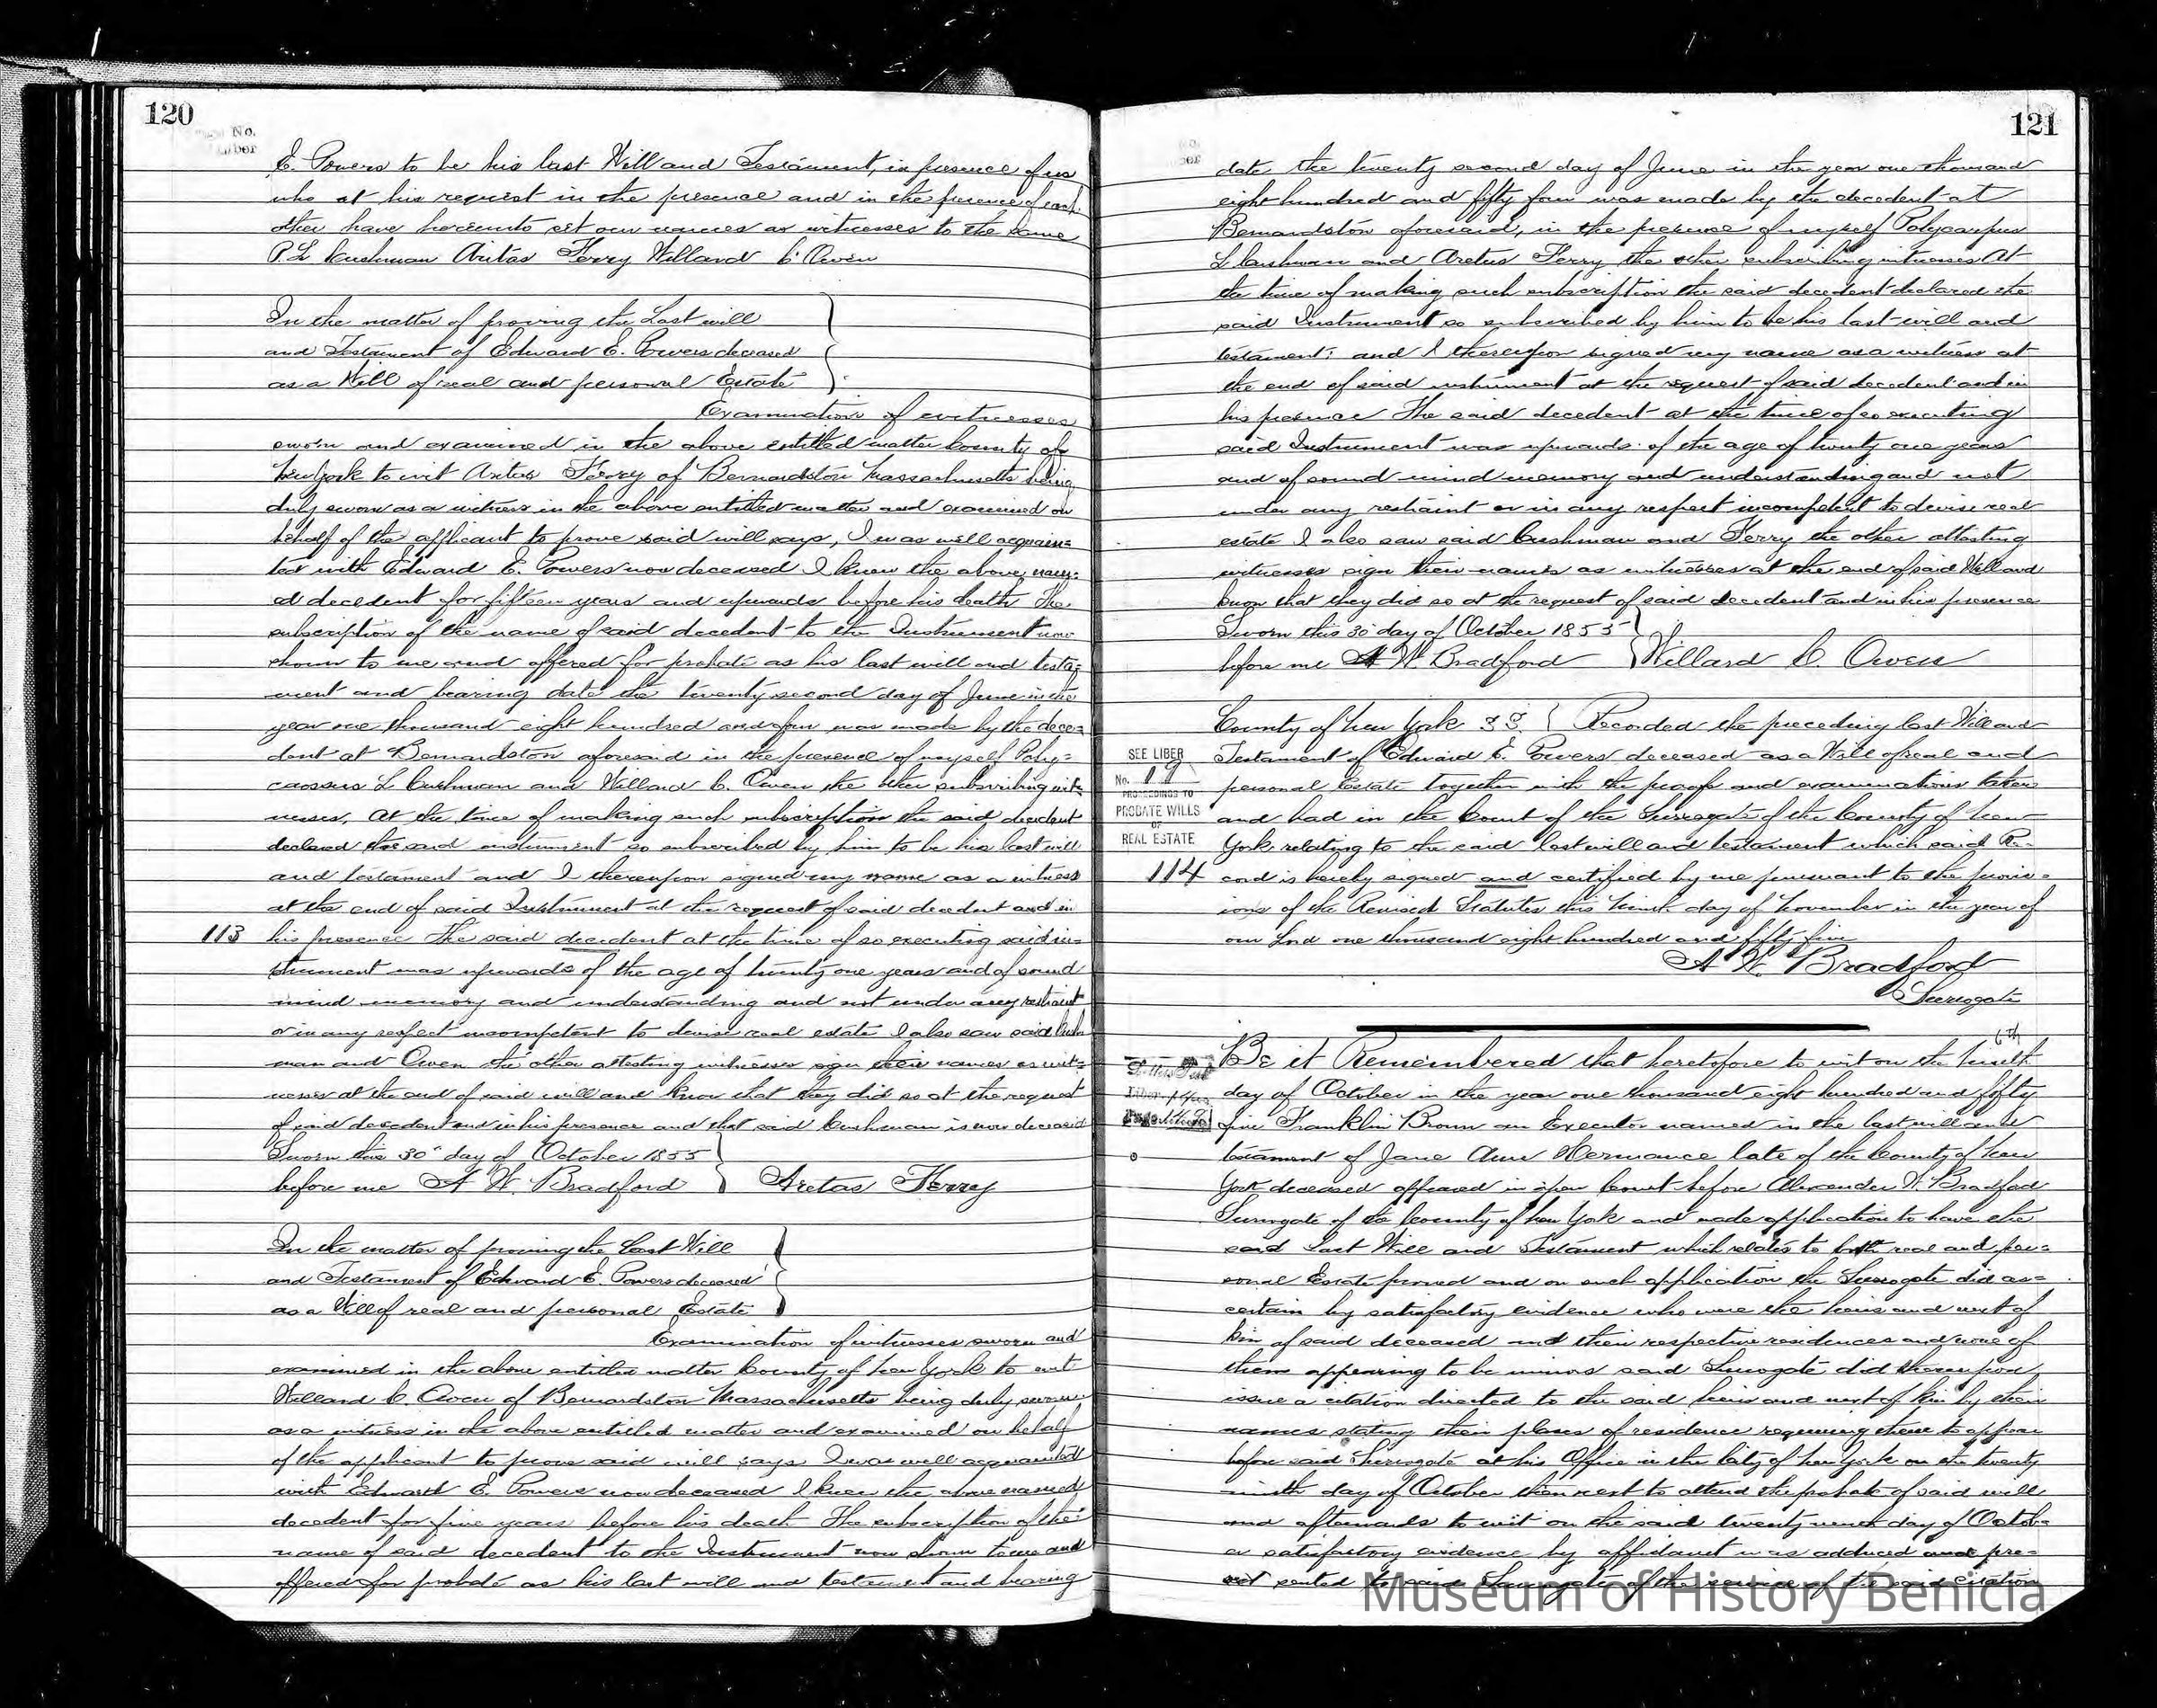 120
No.
E. Powers to be his last Will and Testament, in presence of us
who at his request in the presence and in the presence of each
other have hereunto set our names as witnesses to the same
P. L Cushman Aritas Ferry Willard C. Owen
In the matter of proving the Last will
and Testament of Edward E. Powers deceased
as a Will of real and personal Estate
Examination of witnesses
sworn and examined in the above entitled matter County of
New York to wit Aritas Ferry of Bernardston Massachusetts being
duly sworn as a witness in the above entitled matter and examined on
behalf of the applicant to prove said will says, I was well acquain=
ted with Edward E. Powers now deceased I knew the above nam=
ed decedent for fifteen years and upwards before his death The
subscription of the name of said decedent to the Instrument now
shown to me and offered for probate as his last will and testa=
ment and bearing date the twenty second day of June in the
year one thousand eight hundred and four was made by the dece=
dent at Bernardston aforesaid in the presence of myself Poly=
L Cushman and Willard C. Owen the other subscribing wit=
nesses, At the time of making such subscription the said decedent
declared the said instrument so subscribed by him to be his last will
and testament and I thereupon signed my name as a witness
at the end of said Instrument at the request of said decedent and in
113 his presence The said decedent at the time of so executing said in=
strument was upwards of the age of twenty one years and of sound
mind memory and understanding and not under any restraint
or in any respect incompetent to devise real estate I also saw said Cush
man and Owen the other attesting witnesses sign their names as wit=
nesses at the end of said will and know that they did so at the request
of said decedent and in his presence and that said Cushman is now deceased
Sworn this 30" day of October 1855
before me A W. Bradford Aretas Ferry
In the matter of proving the Last Will
and Testament of Edward E. Powers deceased
as a Will of real and personal Estate
Examination of witnesses sworn and
examined in the above entitled matter County of New York to wit
Willard C. Owen of Bernardston Massachusetts being duly sworn
as a witness in the above entitled matter and examined on behalf
of the applicant to prove said will says I was well acquainted
with Edward E. Powers now deceased I knew the above named
decedent for five years before his death The subscription of the
name of said decedent to the Instrument now shown to me and
offered for probate as his last will and testament and bearing
121
date the twenty second day of June in the year one thousand
eight hundred and fifty four was made by the decedent at
Bernardston aforesaid, in the presence of myself Polycarpus
L Cushman and Aretus Ferry the other subscribing witnesses At
the time of making such subscription the said decedent declared the
said Instrument so subscribed by him to be his last will and
testament; and I thereupon signed my name as a witness at
the end of said instrument at the request of said decedent and in
his presence The said decedent at the time of so executing
said Instrument was upwards of the age of twenty one years
and of sound mind memory and understanding and not
under any restraint or in any respect incompetent to devise real
estate I also saw said Cushman and Ferry the other attesting
witnesses sign their names as witnesses at the end of said Will and
know that they did so at the request of said decedent and in his presence
Sworn this 30 day of October 1855
before me A W Bradford Willard C. Owen
County of New York SS. Recorded the preceding last Will and
Testament of Edward E. Powers deceased as a Will of real and
personal Estate together with the proofs and examinations taken
and had in the Court of the Surrogate of the County of New
York relating to the said last will and testament which said Re-
cord is hereby signed and certified by me pursuant to the provis=
ions of the Revised Statutes this day of November in the year of
our Lord one thousand eight hundred and fifty five
A W. Bradford
Surrogate
SEE LIBER
No.
PROCEEDINGS TO
PROBATE WILLS
OF
REAL ESTATE
114
Be it Remembered that heretofore to wit on the
day of October in the year one thousand eight hundred and fifty
five Franklin Brown an Executor named in the last will and
testament of Jane Ann Hermance late of the County of New
York deceased appeared in open Court before Alexander W. Bradford
Surrogate of the County of New York and made application to have the
said Last Will and Testament which relates to both real and per=
sonal Estate proved and on such application the Surrogate did as=
certain by satisfactory evidence who were the heirs and next of
kin of said deceased and their respective residences and none of
them appearing to be minors said Surrogate did thereupon
issue a citation directed to the said heirs and next of kin by their
names stating their places of residence requiring them to appear
before said Surrogate at his Office in the City of New York on the twenty
ninth day of October then next to attend the probate of said will
and afterwards to wit on the said twenty ninth day of Octob=
er satisfactory evidence by affidavit was adduced and pre=
sented to said Surrogate of the service of the said citation
Museum of History Benicia